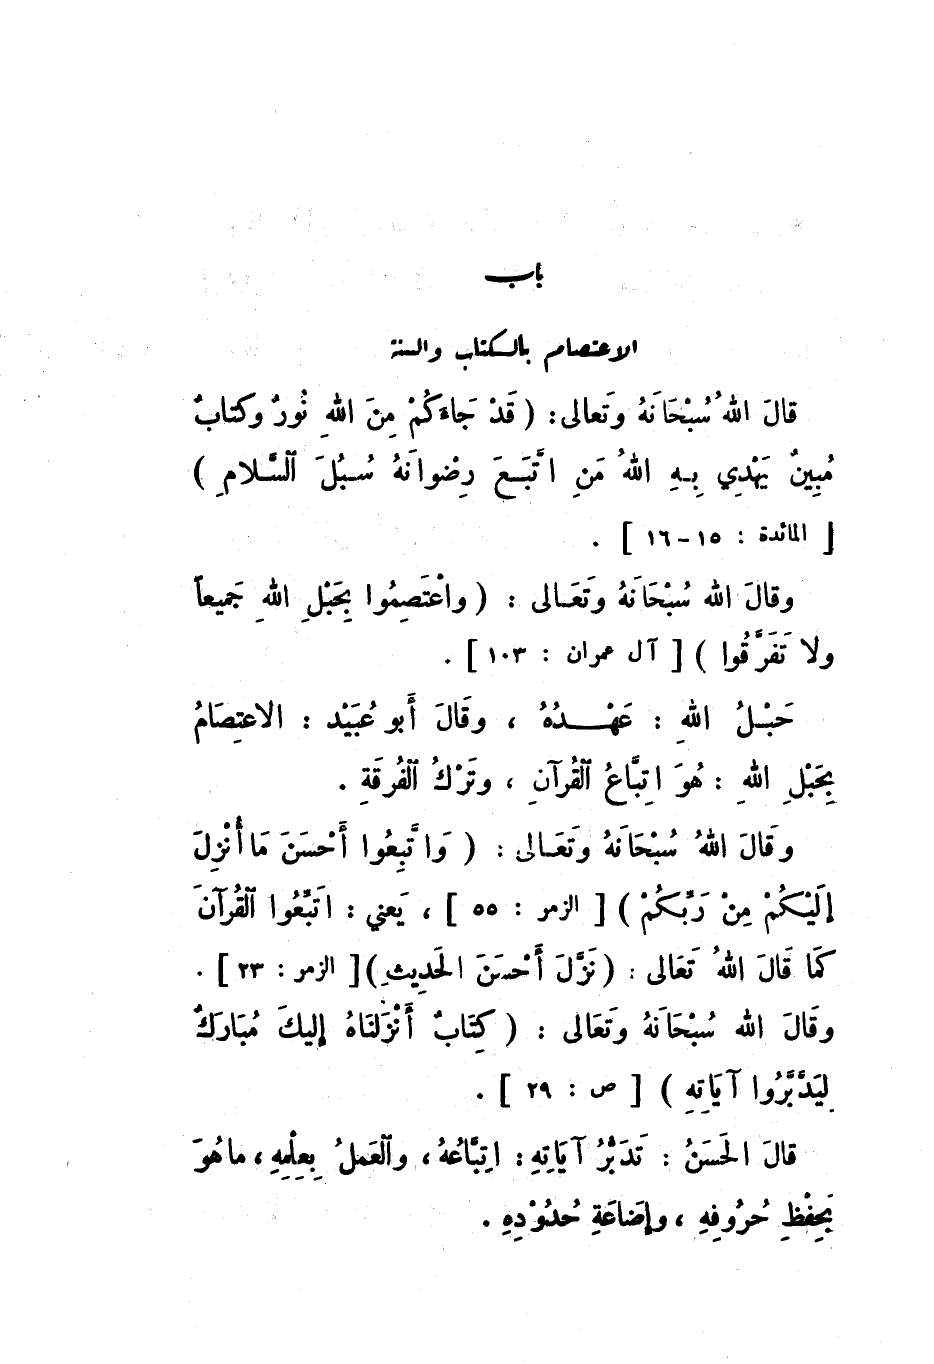 باب
الاعتصام بالكتاب والسنة
قالَ اللهُ سُبْحَانَهُ وَتَعالى: ( قَدْ جَاءَكُمْ مِنَ اللهِ نُورٌ وكتابٌ
مُبِينٌ يَهْدِي بِهِ اللهُ مَنِ اتَّبَعَ رِضْوانَهُ سُبُلَ السَّلامِ )
[ المائدة : ١٥-١٦ ] .
وقالَ الله سُبْحَانَهُ وَتَعَالى : ( واعْتَصِمُوا بِحَبْلِ اللهِ جَمِيعاً
ولا تَفَرَّقُوا ) [ آل عمران : ١٠٣ ] .
حَبْلُ اللهِ : عَهْدُهُ ، وقَالَ أَبو عُبَيْد : الاعتِصَامُ
بِحَبْلِ اللهِ : هُوَ اتِبَّاعُ القُرآنِ ، وتَرْكُ الفُرقَةِ .
وقَالَ اللهُ سُبْحَانَهُ وتَعَالى : ( وَاتَّبِعُوا أَحْسَنَ مَا أُنْزِلَ
إلَيْكُمْ مِنْ رَبِّكُمْ ) [ الزمر : ٥٥ ] ، يَعني : اتَبِّعُوا القُرآنَ
كَمَا قَالَ اللهُ تَعَالى : ( نَزَّلَ أَحْسَنَ الحَدِيثِ ) [ الزمر : ٢٣ ] .
وقَالَ الله سُبْحَانَهُ وتَعَالى : ( كِتَابٌ أَنْزَلنَاهُ إليكَ مُبَارَكٌ
لِيَدَّبَّرُوا آيَاتِهِ ) [ ص : ٢٩ ] .
قالَ الحَسَنُ : تَدَبُّرُ آيَاتِهِ : اتِبَّاعُهُ ، والعَملُ بِعِلْمِهِ ، ما هُوَ
بَحِفْظِ حُرُوفِهِ ، وإضَاعَةِ حُدُوْدِهِ .